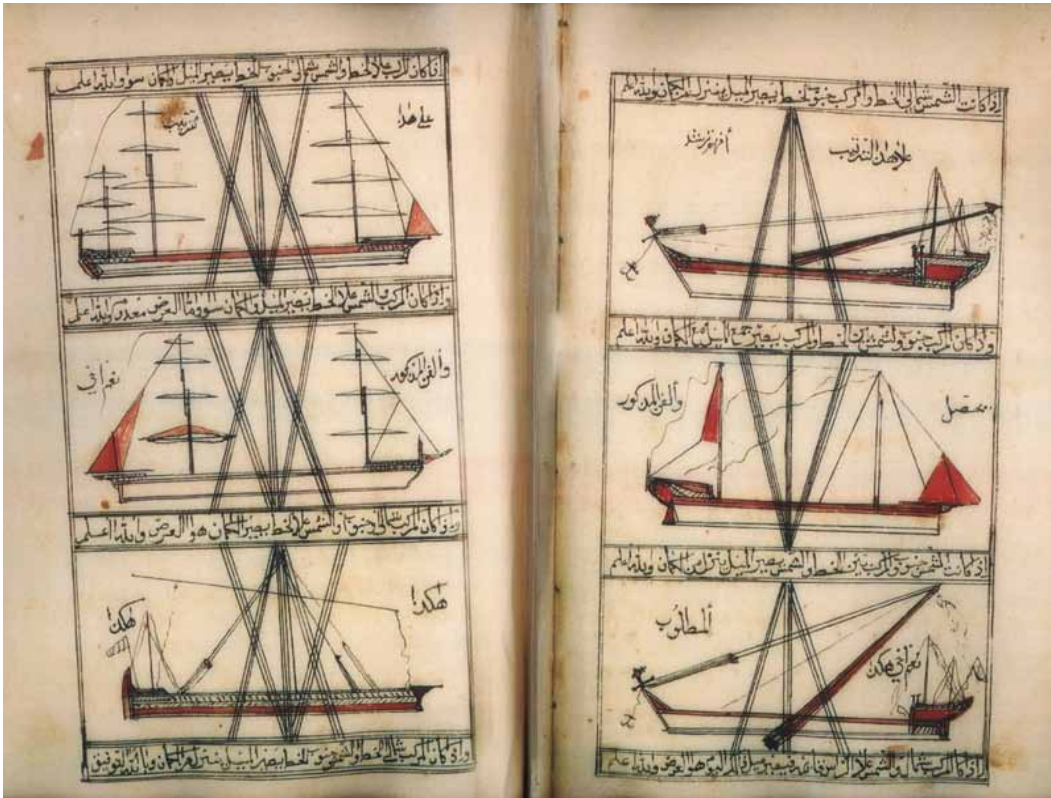 إذا كانت الشمس شمالي الخط والمركب جنوبي الخط يصير الميل ينزل من الكمان والله أعلم
على هذا الترتيب
وإذا كان المركب جنوبي والشمس بين الخط والمركب يصير جمع الميل مع الكمان والله أعلم
محصل
وألفن المذكور
إذا كانت الشمس جنوبي والمركب بين الخط والشمس يصير الميل ينزل من الكمان والله أعلم
ألمطلوب
نعم أخي هكذا
إذا كان المركب شمال والشمس على الرأس اليوم هو العرض والله أعلم
إذا كان المركب على الخط والشمس شمالي الخط يصير الميل الكمان سوا والله اعلم
على هذا
وإذا كان المركب والشمس على الخط يصير الميل والكمان سوا العرض معدوم والله اعلم
وألفن المذكور
نعم اخي
وإذا كان المركب شمالي او جنوبي والشمس على الخط يصير الكمان هو العرض والله اعلم
هكذا
هكذا
وإذا كان المركب شمالي الخط والشمس جنوبي الخط يصير الميل ينزل من الكمان وبالله التوفيق